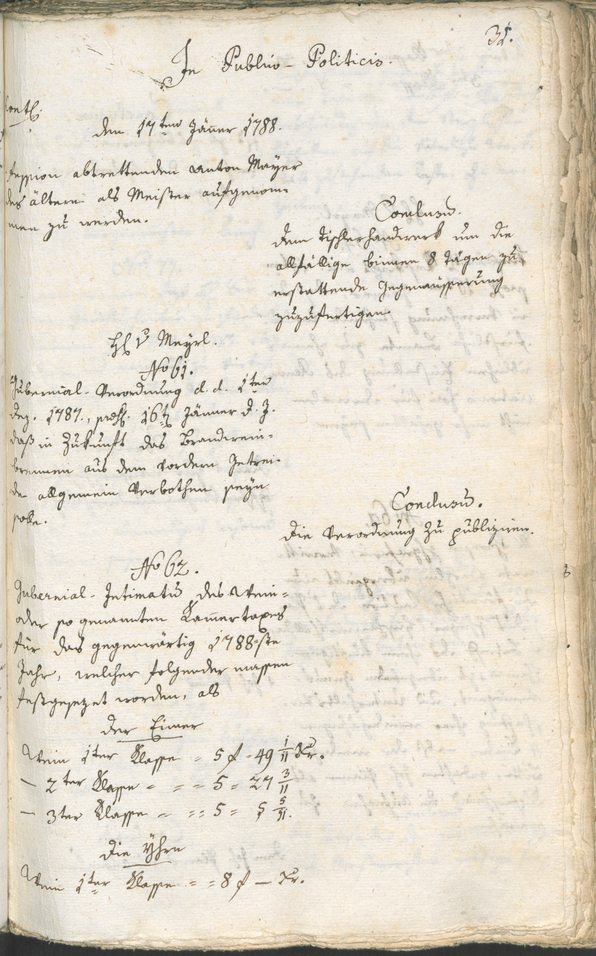 31.
In Publico-Politicis.
Cont.
den 17ten Jäner 1788.
abtrettenden Anton Mayer
des ältern als Meister aufgenom-
men zu werden.
Conclusum.
dem Tischlerhandwerk um die
allfällige binnen 8 Tägen zu
erstattende Gegenäusserung
zuzufertigen.
H v Meyrl.
No 61.
Gubernial-Verordnung d. d. 1ten
Dez. 1787., præs. 16t Jänner d. J.
daß in Zukunft das Brandwein-
brennen aus dem Getrei-
de allgemein verbothen seyn
solle.
Conclusum.
Die Verordnung zu publiziren.
No 62.
Gubernial-Intimatum des Wein-
oder so genannten Kamertaxes
für das gegenwärtig 1788-ste
Jahr, welcher folgender massen
festgesezet worden, als
der Eimer
Wein 1ter Klasse = 5 f - 49 1/11 Kr.
— 2ter Klasse = = = 5 = 27 3/11
— 3ter Klasse = = = 5 = 5 5/11.
die Yhrn
Wein 1ter Klasse = = 8 f — Kr.